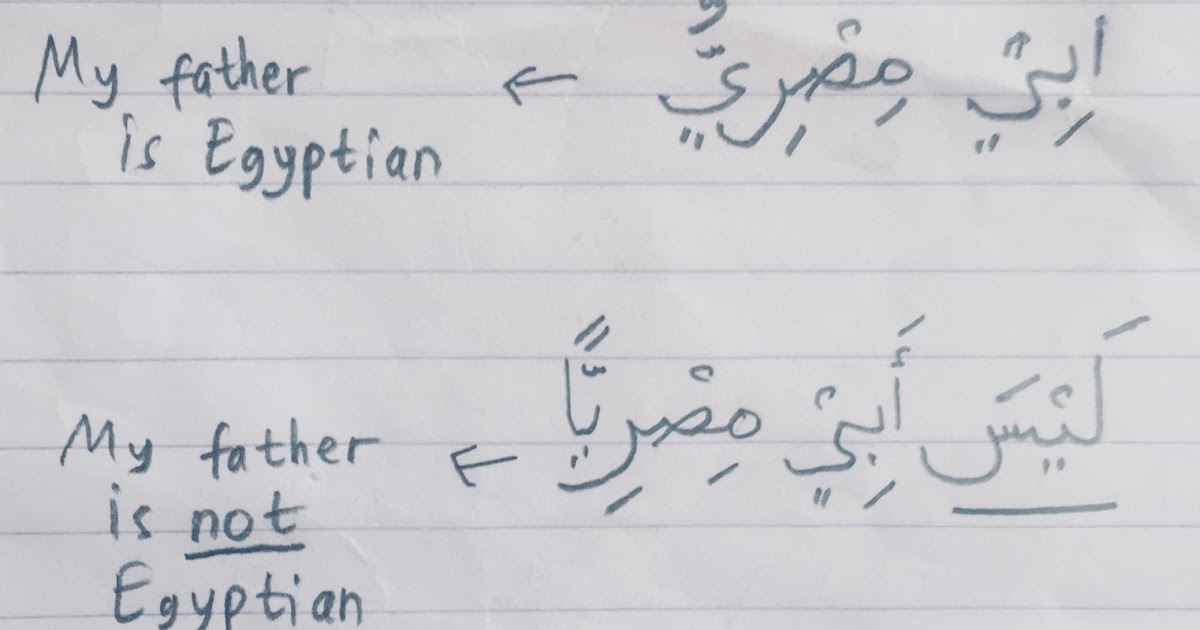 My father ← ابِيْ مِصْرِيٌّ
is Egyptian
My father ← لَيْسَ أَبِيْ مِصْرِيًّا
is not
Egyptian